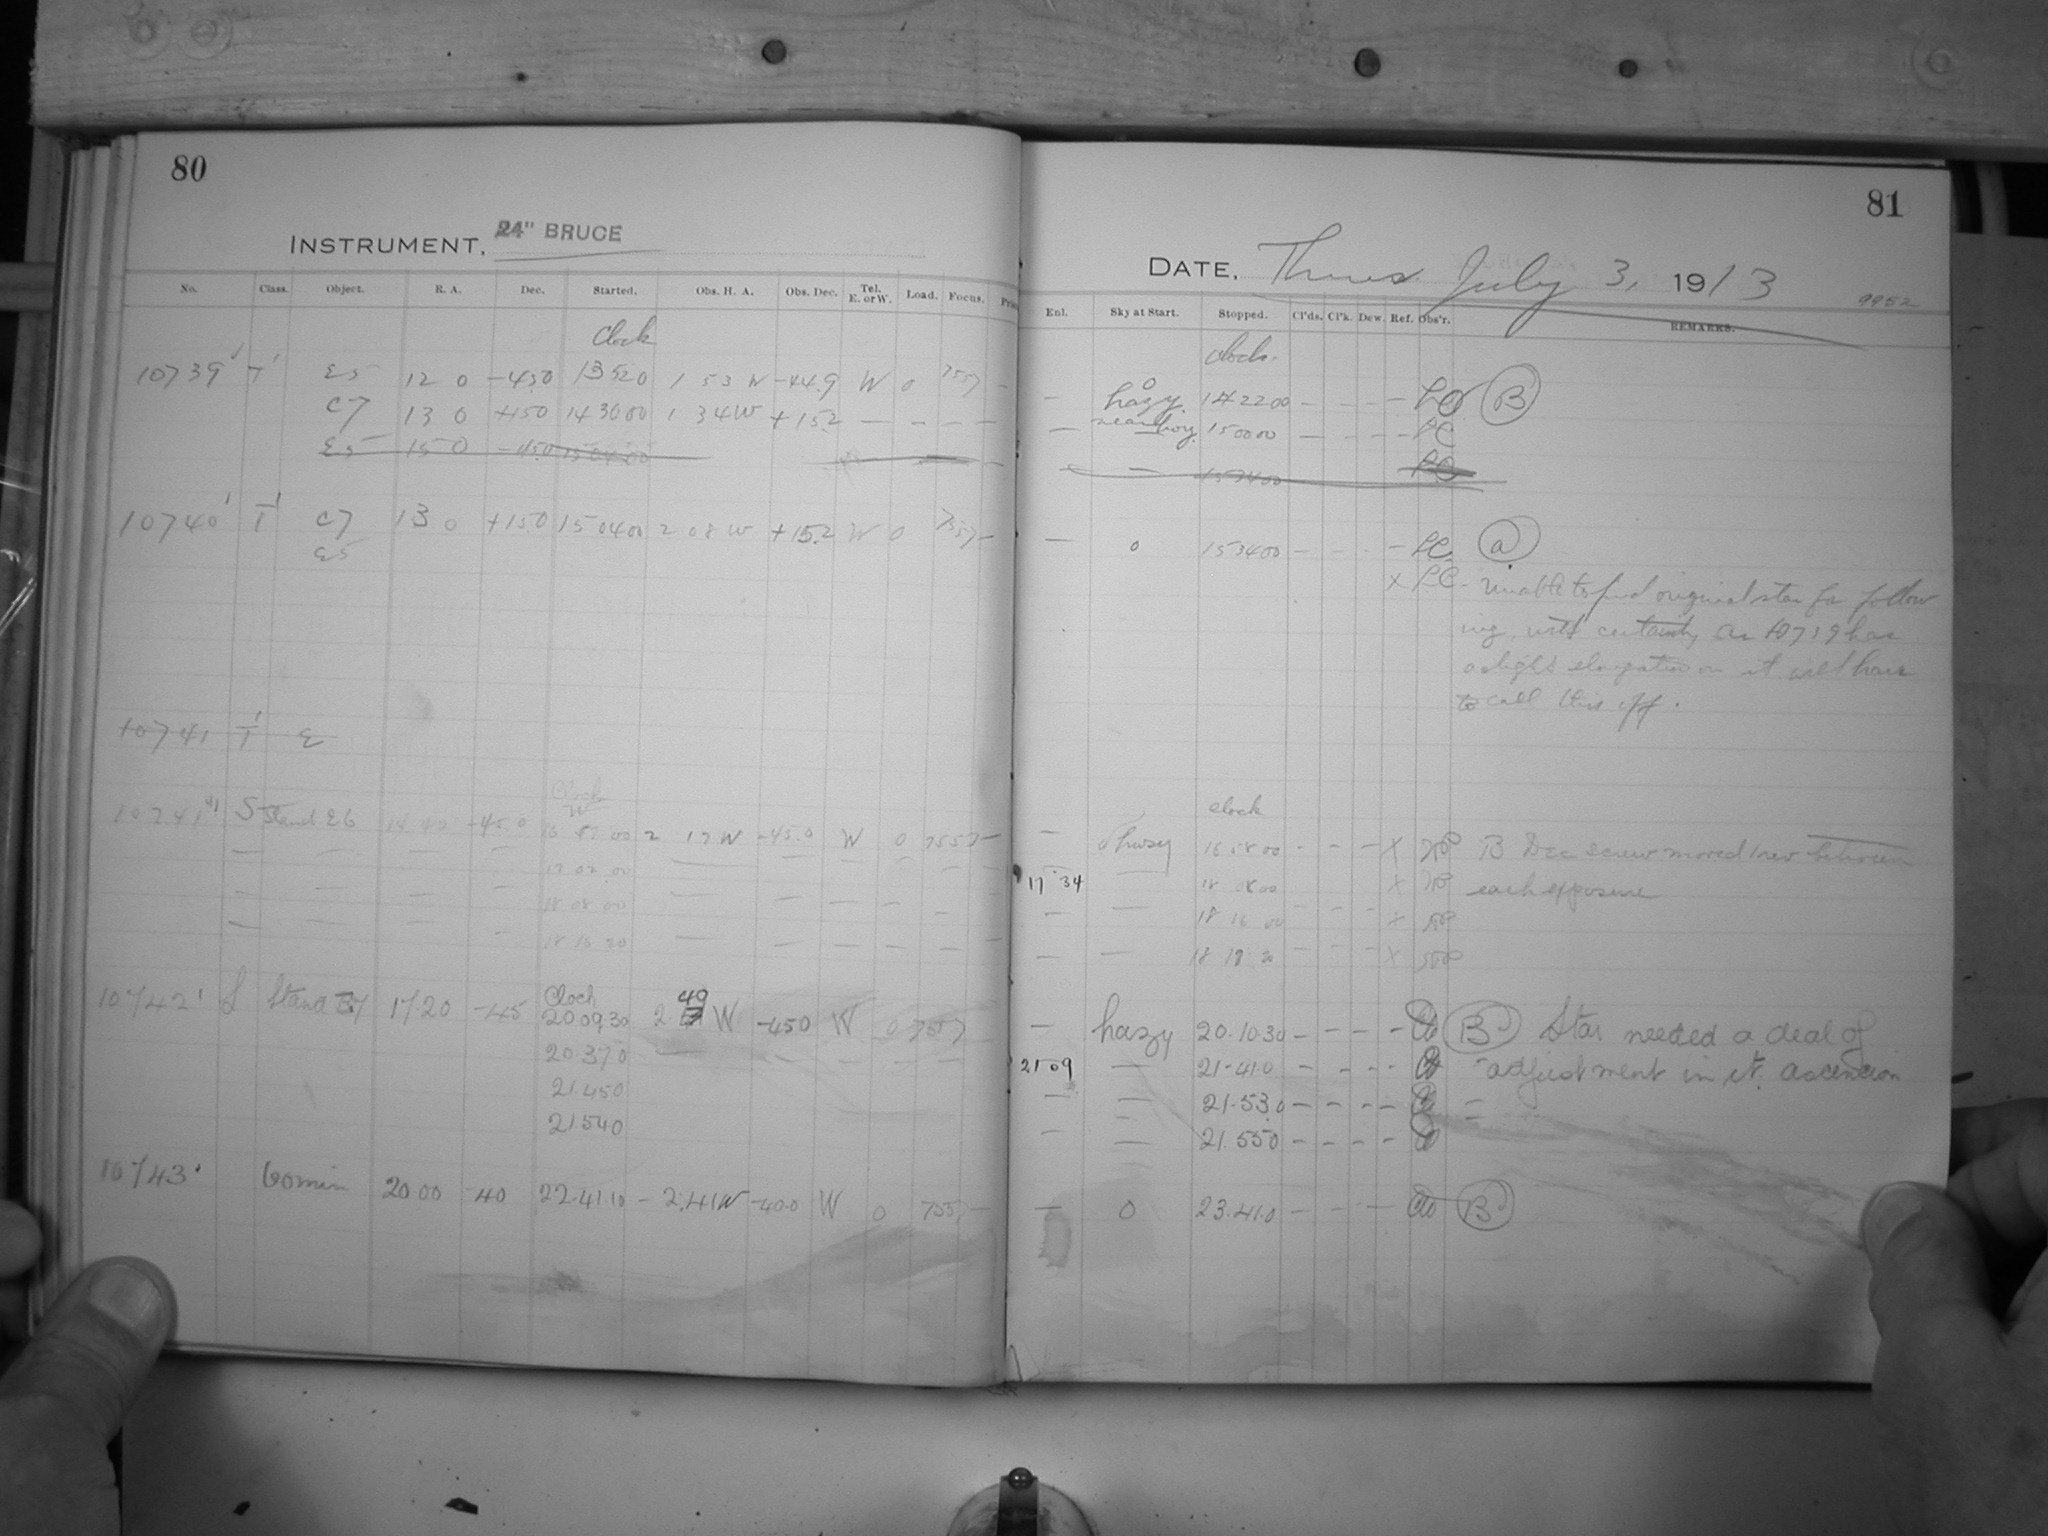 80
INSTRUMENT, 24" BRUCE
No. Class. Object. R. A. Dec. Started. Obs. H. A. Obs. Dec. Tel. E. or W. Load. Focus.
Clock
10739 T E5 12 0 -45.0 13520 1 53 W -44.9 W 0 7557 -
C7 13 0 +150 143000 1 34W +15.2 - - - -
E5 15 0 -450 150400
10740 T C7 13 0 +15.0 150400 2 08 W +15.2 W 0 7557 -
E5
10741 T E
Clock
10741 S Stand E6 -45.0 00 2 17 W -45.0 W 0 7557 -
17 02 00
18 08 00
18 16 20
Clock
10742 S Stand E7 17.20 -45 20.09.30 2. 40 W -450 W 0 7557
20.370
21.450
21.540
10743 60 min 20.00 -40 22.41.10 - 2.41W -40.0 W 0 7557 -
81
DATE, Thurs. July 3, 1913
9952
Enl. Sky at Start. Stopped. Cl'ds. Cl'k. Dew. Ref. Obs'r. REMARKS.
clock
- hazy 142200 - - - - B
- 150000 - - - -
- 153400
- 0 153400 - - - - a
x unable to find original star for follow
ing with certainty as 10739 has
a slight elongation on it will have
to call this off.
clock
- 16 58 00 - - - x B Dec screw moved 1 rev between
17 34 - 18 08 00 x each exposure
- - 18 16 00 - - - x
- - 18 19 - - - x
- hazy 20.10.30 - - - - B Star needed a deal of
21 09 - 21.41.0 - - - - adjustment in rt. ascension
- - 21.53.0 - - - - =
- - 21.550 - - - -
- 0 23.41.0 - - - B